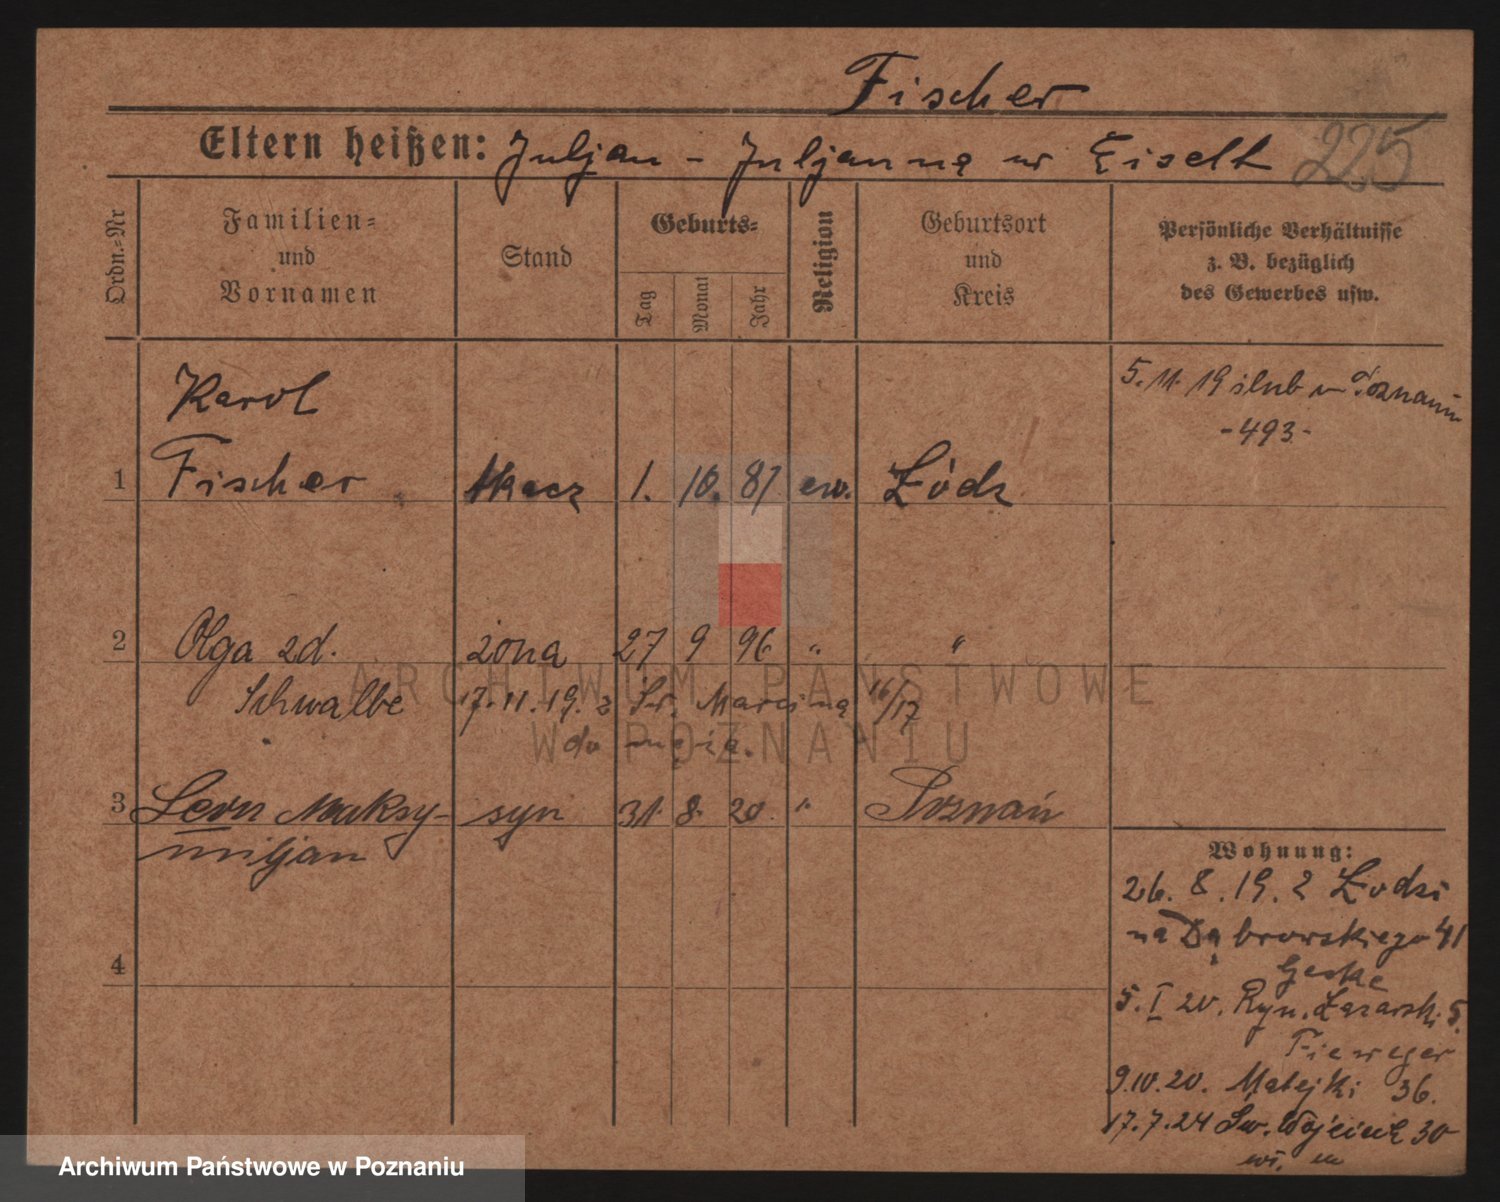 Fischer
Eltern heißen: Juljan - Juljanna ur Eiselt
225
Ordn.=Nr
Familien=
und
Vornamen
Stand
Geburts=
Tag
Monat
Jahr
Religion
Geburtsort
und
Kreis
Persönliche Verhältnisse
z. B. bezüglich
des Gewerbes usw.
Karol
5. 11. 19 ślub w Poznaniu
-493-
1 Fischer tkacz 1. 10. 87 ew. Łódz
2 Olga zd. żona 27 9 96 " "
Schwalbe 17. 11. 19. z Św. Marcina 16/17
do męża.
3 Leon Maksy- syn 31. 8. 20. " Poznań
miljan
4
Wohnung:
26. 8. 19. z Łodzi
na Dąbrowskiego 41
Geske
5. I 20. Ryn. Łazarski 5.
Fieweger
9.10.20. Matejki 36.
17.7.24 Św. Wojciech 30
ARCHIWUM PAŃSTWOWE
W POZNANIU
Archiwum Państwowe w Poznaniu